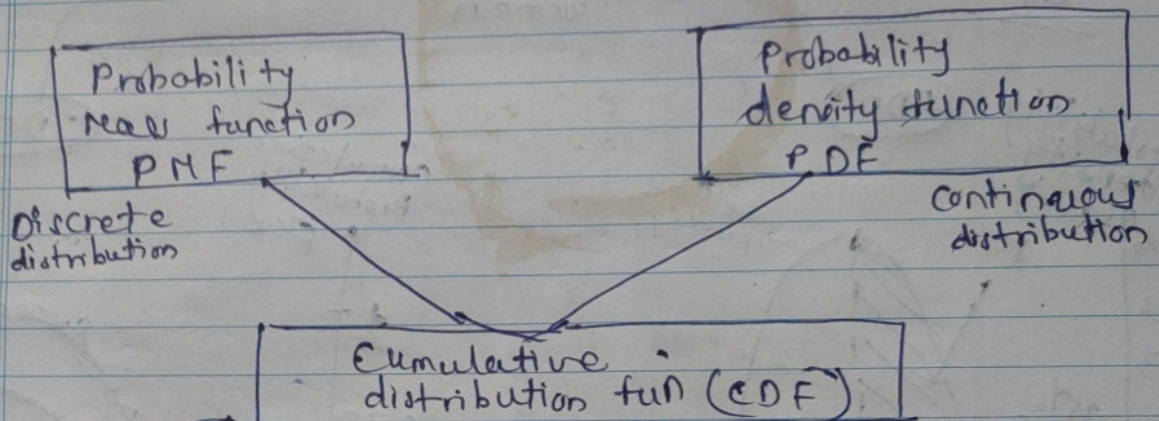 Probability
mass function
PMF
Discrete
distribution
Probability
density function
PDF
Continuous
distribution
Cumulative
distribution fun (CDF)